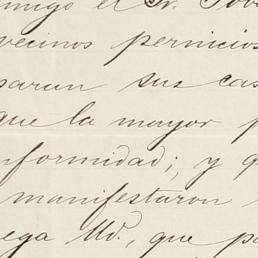 migo el Sr.
vecinos pernicios
paran sus cas
que la mayor p
nformidad; y q
manifestaron
ega Ud., que pa